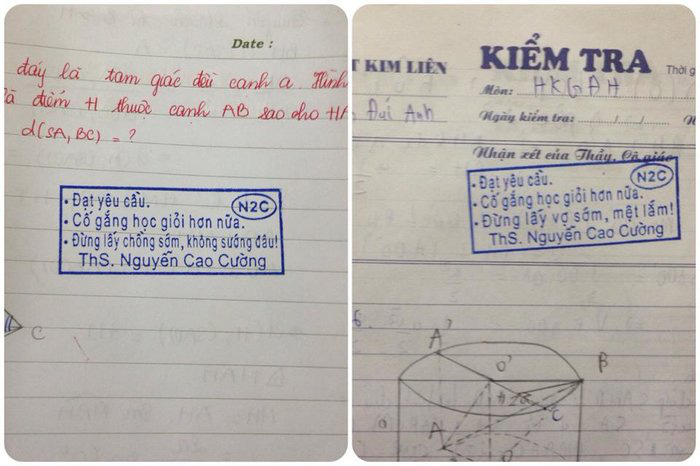 Date :
đáy là tam giác đều cạnh a. Hình
là điểm H thuộc cạnh AB sao cho HA
d(SA, BC) = ?
N2C
• Đạt yêu cầu.
• Cố gắng học giỏi hơn nữa.
• Đừng lấy chồng sớm, không sướng đâu!
ThS. Nguyễn Cao Cường
C
T KIM LIÊN
KIỂM TRA
Thời g
Môn: HKGAH
Đưi Anh
Ngày kiểm tra: / /
N
Nhận xét của Thầy, Cô giáo
N2C
• Đạt yêu cầu.
• Cố gắng học giỏi hơn nữa.
• Đừng lấy vợ sớm, mệt lắm!
ThS. Nguyễn Cao Cường
A'
O'
B
C
A